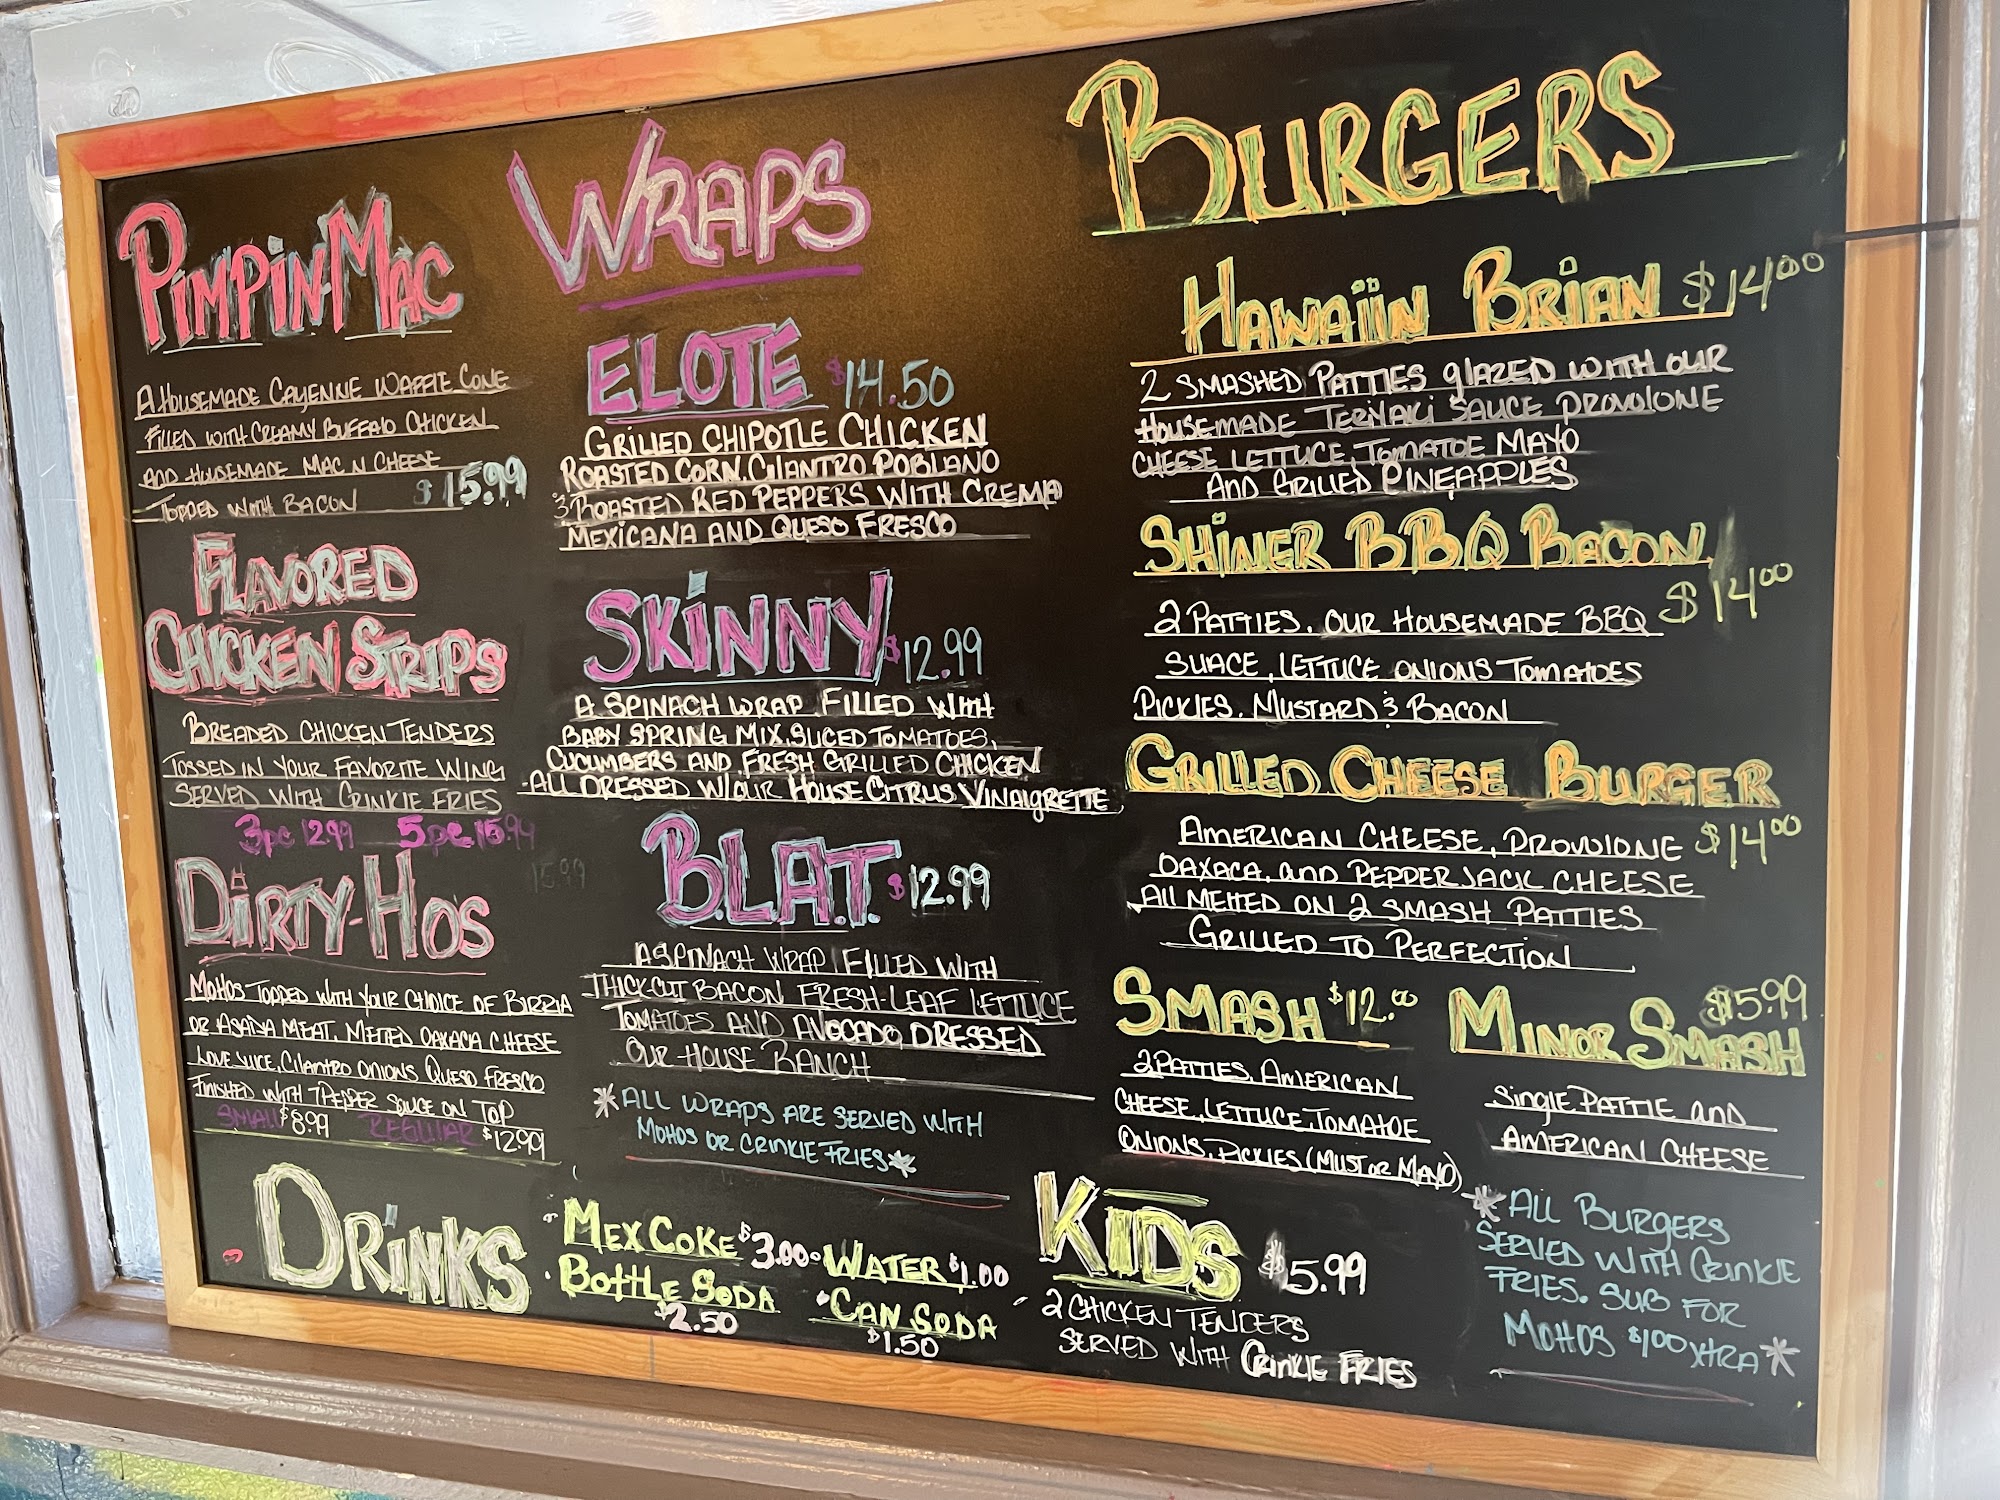 PIMPIN-MAC
A HOUSEMADE CAYENNE WAFFLE CONE
FILLED WITH CREAMY BUFFALO CHICKEN
AND HOUSEMADE MAC N CHEESE
TOPPED WITH BACON $15.99
FLAVORED
CHICKEN STRIPS
BREADED CHICKEN TENDERS
TOSSED IN YOUR FAVORITE WING
SERVED WITH CRINKLE FRIES
3pc 12.99 5pc 15.99
15.99
DIRTY-HO'S
MOHOS TOPPED WITH YOUR CHOICE OF BIRRIA
OR ASADA MEAT, MELTED OAXACA CHEESE
LOVE JUICE, CILANTRO ONIONS QUESO FRESCO
FINISHED WITH 7PEPPER SAUCE ON TOP
SMALL $8.99 REGULAR $12.99
WRAPS
ELOTE $14.50
GRILLED CHIPOTLE CHICKEN
ROASTED CORN, CILANTRO POBLANO
& ROASTED RED PEPPERS WITH CREMA
MEXICANA AND QUESO FRESCO
SKINNY $12.99
A SPINACH WRAP FILLED WITH
BABY SPRING MIX, SLICED TOMATOES,
CUCUMBERS AND FRESH GRILLED CHICKEN
ALL DRESSED W/OUR HOUSE CITRUS VINAIGRETTE
B.L.A.T. $12.99
A SPINACH WRAP FILLED WITH
THICKCUT BACON FRESH-LEAF LETTUCE
TOMATOES AND AVOCADO, DRESSED
OUR-HOUSE RANCH
*ALL WRAPS ARE SERVED WITH
MOHOS OR CRINKLE FRIES*
BURGERS
HAWAIIN BRIAN $14.00
2 SMASHED PATTIES GLAZED WITH OUR
HOUSEMADE TERIYAKI SAUCE PROVOLONE
CHEESE LETTUCE, TOMATOE MAYO
AND GRILLED PINEAPPLES
SHINER BBQ BACON
$14.00
2 PATTIES, OUR HOUSEMADE BBQ
SUACE, LETTUCE ONIONS TOMATOES
PICKLES, MUSTARD & BACON
GRILLED CHEESE BURGER
AMERICAN CHEESE, PROVOLONE $14.00
OAXACA, AND PEPPERJACK CHEESE
ALL MELTED ON 2 SMASH PATTIES
GRILLED TO PERFECTION
SMASH $12.00
2 PATTIES, AMERICAN
CHEESE, LETTUCE, TOMATOE
ONIONS, PICKLES (MUST OR MAYO)
MINOR SMASH $5.99
SINGLE PATTIE AND
AMERICAN CHEESE
*ALL BURGERS
SERVED WITH CRINKLE
FRIES. SUB FOR
MOHOS $1.00 XTRA*
DRINKS
MEX COKE $3.00
BOTTLE SODA
$2.50
WATER $1.00
CAN SODA
$1.50
KIDS $5.99
2 CHICKEN TENDERS
SERVED WITH CRINKLE FRIES